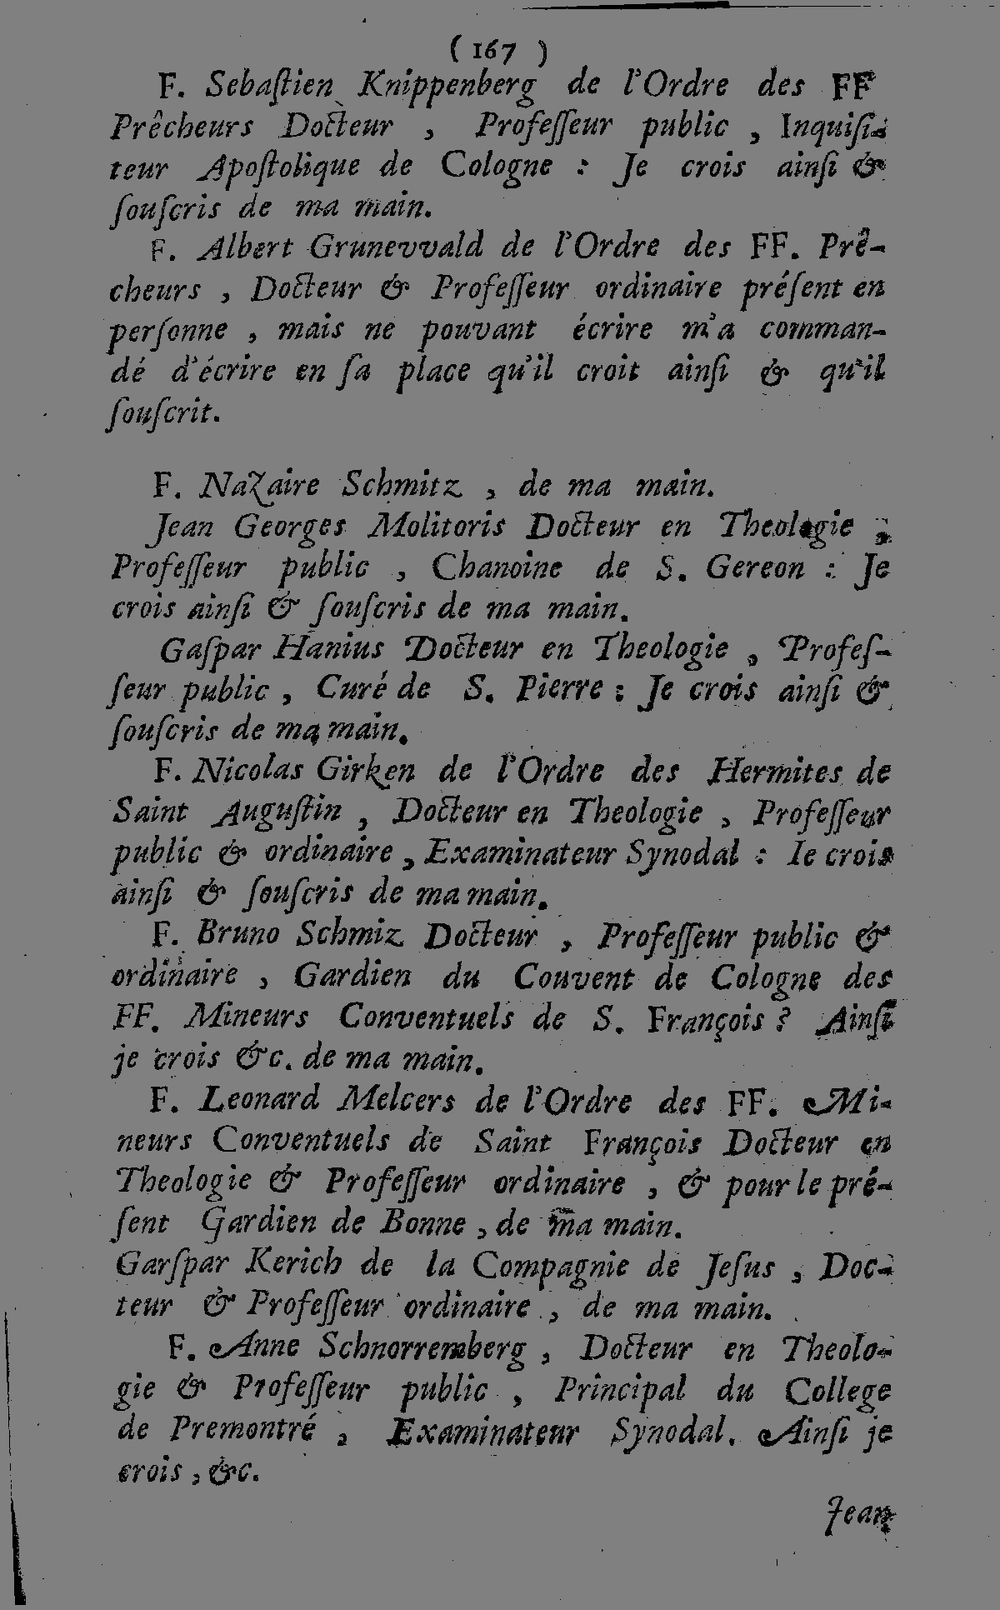 ( 167 )
F. Sebaſtien Knippenberg de l'Ordre des FF
Prêcheurs Docteur , Profeſſeur public , Inquiſi-
teur Apoſtolique de Cologne : Je crois ainſi &
ſouſcris de ma main.
F. Albert Grunevvald de l'Ordre des FF. Prê-
cheurs , Docteur & Profeſſeur ordinaire préſent en
perſonne , mais ne pouvant écrire m'a comman-
dé d'écrire en ſa place qu'il croit ainſi & qu'il
ſouſcrit.
F. Nazaire Schmitz , de ma main.
Jean Georges Molitoris Docteur en Theologie ,
Profeſſeur public , Chanoine de S. Gereon : Je
crois ainſi & ſouſcris de ma main.
Gaſpar Hanius Docteur en Theologie , Profeſ-
ſeur public , Curé de S. Pierre : Je crois ainſi &
ſouſcris de ma main.
F. Nicolas Girken de l'Ordre des Hermites de
Saint Auguſtin , Docteur en Theologie , Profeſſeur
public & ordinaire , Examinateur Synodal : Ie crois
ainſi & ſouſcris de ma main.
F. Bruno Schmiz Docteur , Profeſſeur public &
ordinaire , Gardien du Couvent de Cologne des
FF. Mineurs Conventuels de S. François ? Ainſi
je crois &c. de ma main.
F. Leonard Melcers de l'Ordre des FF. Mi-
neurs Conventuels de Saint François Docteur en
Theologie & Profeſſeur ordinaire , & pour le pré-
ſent Gardien de Bonne , de ma main.
Garſpar Kerich de la Compagnie de Jeſus , Doc-
teur & Profeſſeur ordinaire , de ma main.
F. Anne Schnorremberg , Docteur en Theolo-
gie & Profeſſeur public , Principal du College
de Premontré , Examinateur Synodal. Ainſi je
crois , &c.
Jean